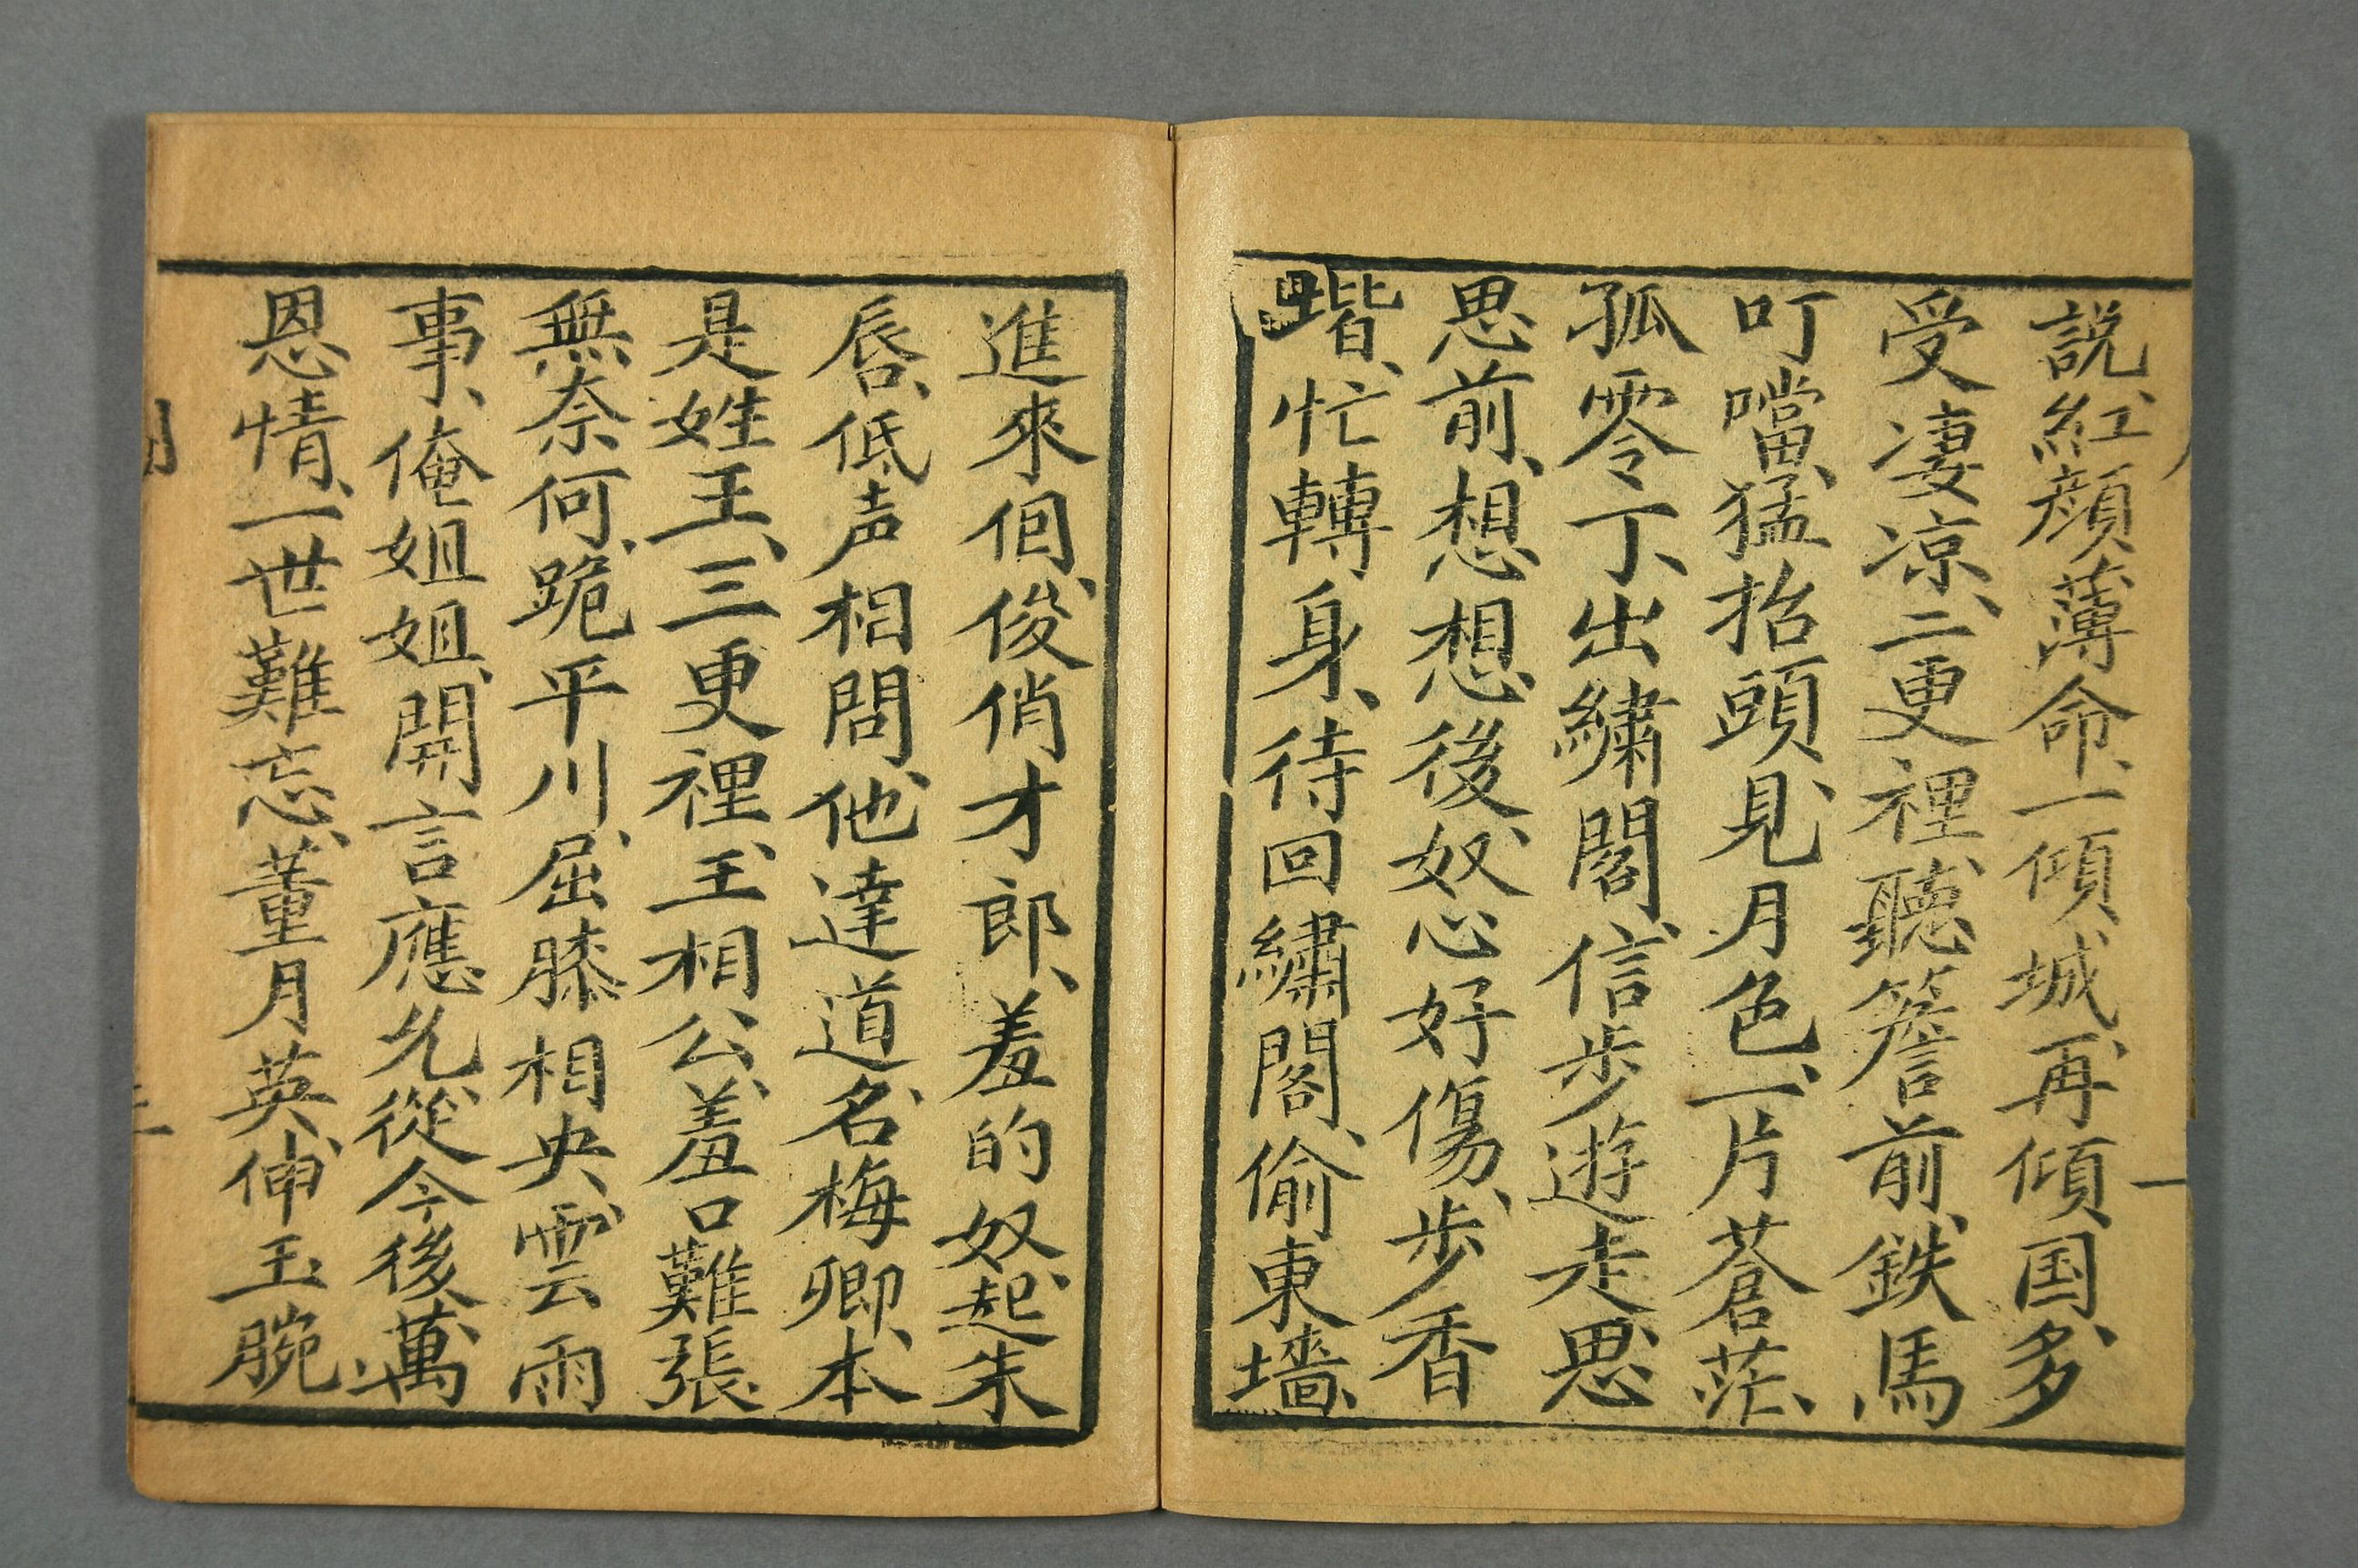 説、紅顔薄命、一傾城、再傾国、多
受凄凉、二更裡、聽簷前、鉄馬
叮噹、猛抬頭、見月色、一片蒼茫、
孤零丁、出繡閣、信步遊走、思
思前、想想後、奴心好傷、步香
堦、忙轉身、待回繡閣、偷東墻、
進來個、俊俏才郎、羞的奴、起朱
唇、低声相問、他達道、名梅卿、本
是姓王、三更裡、王相公、羞口難張、
無奈何、跪平川、屈膝相央、雲雨
事、俺姐姐、開言應允、從今後、萬
恩情、一世難忘、董月英、伸玉腕